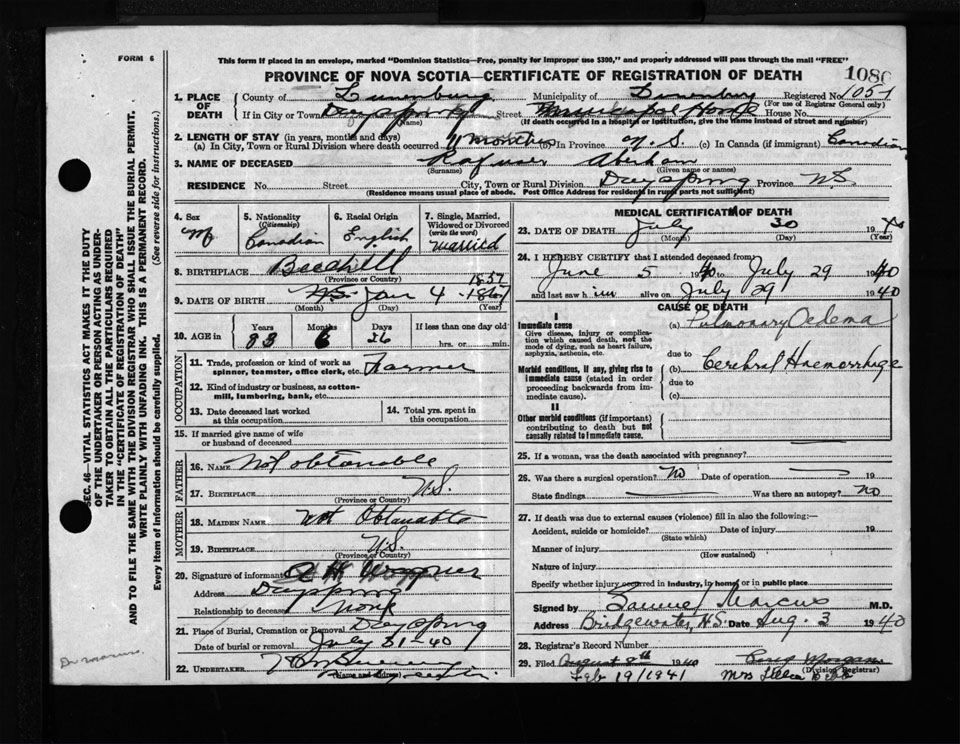 FORM 6
This form if placed in an envelope, marked "Dominion Statistics—Free, penalty for improper use $300," and properly addressed will pass through the mail "FREE"
PROVINCE OF NOVA SCOTIA—CERTIFICATE OF REGISTRATION OF DEATH
1080
1. PLACE OF DEATH
County of Lunenburg Municipality of Lunenburg Registered No. 1057
(For use of Registrar General only)
If in City or Town Dayspring Street House No.
(Name) (If death occurred in a hospital or institution, give the name instead of street and number)
2. LENGTH OF STAY (in years, months and days)
(a) In City, Town or Rural Division where death occurred 11 months (b) In Province N.S. (c) In Canada (if immigrant) Canadian
3. NAME OF DECEASED Rafuser Aberham
(Surname) (Given name or names)
RESIDENCE No. Street City, Town or Rural Division Dayspring Province N.S.
(Residence means usual place of abode. Post Office Address for residents in rural parts not sufficient)
4. Sex M
5. Nationality (Citizenship) Canadian
6. Racial Origin English
7. Single, Married, Widowed or Divorced (write the word) married
8. BIRTHPLACE Beechill
(Province or Country) N.S.
1857
9. DATE OF BIRTH Jan 4 1867
(Month) (Day) (Year)
10. AGE in Years 83 Months 6 Days 26 If less than one day old hrs. or min.
OCCUPATION
11. Trade, profession or kind of work as spinner, teamster, office clerk, etc. Farmer
12. Kind of industry or business, as cotton-mill, lumbering, bank, etc.
13. Date deceased last worked at this occupation
14. Total yrs. spent in this occupation
15. If married give name of wife or husband of deceased
FATHER
16. NAME Not obtanable
17. BIRTHPLACE N.S.
(Province or Country)
MOTHER
18. MAIDEN NAME Not Obtanable
19. BIRTHPLACE N.S.
(Province of Country)
20. Signature of informant
Address Dayspring
Relationship to deceased none
21. Place of Burial, Cremation or Removal Dayspring
Date of burial or removal July 31-40
22. UNDERTAKER
(Name and address)
MEDICAL CERTIFICATE OF DEATH
23. DATE OF DEATH July 30 1940
(Month) (Day) (Year)
24. I HEREBY CERTIFY that I attended deceased from:
June 5 1940 to July 29 1940
and last saw him alive on July 29 1940
CAUSE OF DEATH
I
Immediate cause
Give disease, injury or complication which caused death, not the mode of dying, such as heart failure, asphyxia, asthenia, etc.
(a) Pulmonary Oedema
due to
Morbid conditions, if any, giving rise to immediate cause (stated in order proceeding backwards from immediate cause).
(b) Cerebral Haemorrhage
due to
(c)
II
Other morbid conditions (if important) contributing to death but not causally related to immediate cause.
25. If a woman, was the death associated with pregnancy?
26. Was there a surgical operation? No Date of operation 19
State findings Was there an autopsy? No
27. If death was due to external causes (violence) fill in also the following:—
Accident, suicide or homicide? Date of injury 19
(State which)
Manner of injury
(How sustained)
Nature of injury
Specify whether injury occurred in industry, in home, or in public place
Signed by Samuel Marcus M.D.
Address Bridgewater, N.S. Date Aug. 3 1940
28. Registrar's Record Number
29. Filed August 8th 1940 Morgan
(Division Registrar)
Feb 19/1941 Mrs
SEC. 46—VITAL STATISTICS ACT MAKES IT THE DUTY
OF THE UNDERTAKER OR PERSON ACTING AS UNDER-
TAKER TO OBTAIN ALL THE PARTICULARS REQUIRED
IN THE "CERTIFICATE OF REGISTRATION OF DEATH"
AND TO FILE THE SAME WITH THE DIVISION REGISTRAR WHO SHALL ISSUE THE BURIAL PERMIT.
WRITE PLAINLY WITH UNFADING INK. THIS IS A PERMANENT RECORD.
Every item of information should be carefully supplied.
(See reverse side for instructions.)
Dr Marcus.